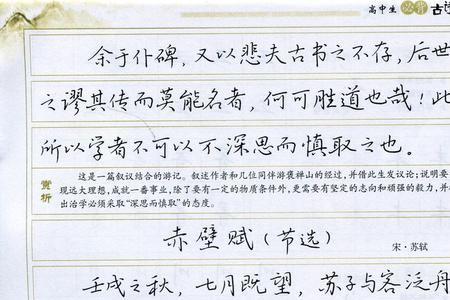 高中生 必背 古
余于仆碑，又以悲夫古书之不存，后世
之谬其传而莫能名者，何可胜道也哉！此
所以学者不可以不深思而慎取之也。
赏析
这是一篇叙议结合的游记。叙述作者和几位同伴游褒禅山的经过，并借此生发议论；说明要
现远大理想，成就一番事业，除了要有一定的物质条件外，更需要有坚定的志向和顽强的毅力，并
出治学必须采取“深思而慎取”的态度。
赤壁赋（节选）
宋·苏轼
壬戌之秋，七月既望，苏子与客泛舟